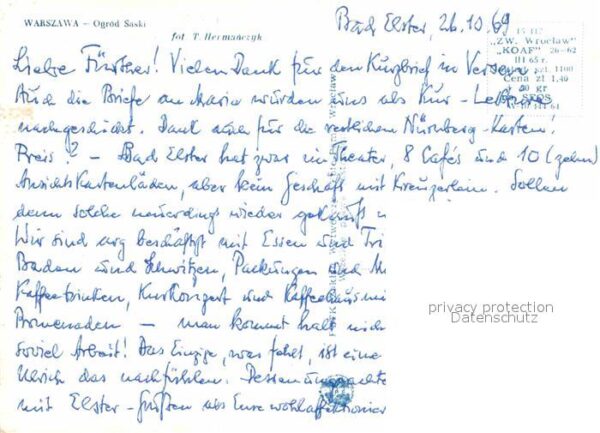 WARSZAWA – Ogród Saski
fot T. Hermańczyk
Bad Elster, 26.10.69
15 112
"ZW. Wrocław"
"KOAF" 26-62
III 65 r.
1100
Cena zł 1,40
Liebe Fürther! Vielen Dank für den Kurzbrief in Versen.
Auch die Briefe an Maria wurden uns als Kur-Lektüre
nachgeschickt. Dank auch für die restlichen Nürnberg-Karten!
Preis? – Bad Elster hat zwar im Theater, 8 Cafés und 10 (zehn)
Ansichtskartenläden, aber kein Geschäft mit Kreuzerlein. Sollen
denn solche neuerdings wieder gekauft
Wir sind arg beschäftigt mit Essen und Tri
Baden und Schwitzen, Packungen und M
Kaffeetrinken, Kurkonzert und Kaffeehausmu
Promenaden – man kommt halt nich
soviel Arbeit! Das Einzige, was fehlt, ist eine
Ulrich das nachfühlen. Dessenungeachte
mit Elster-Grüßen als Eure wohlaffektionier
privacy protection
Datenschutz